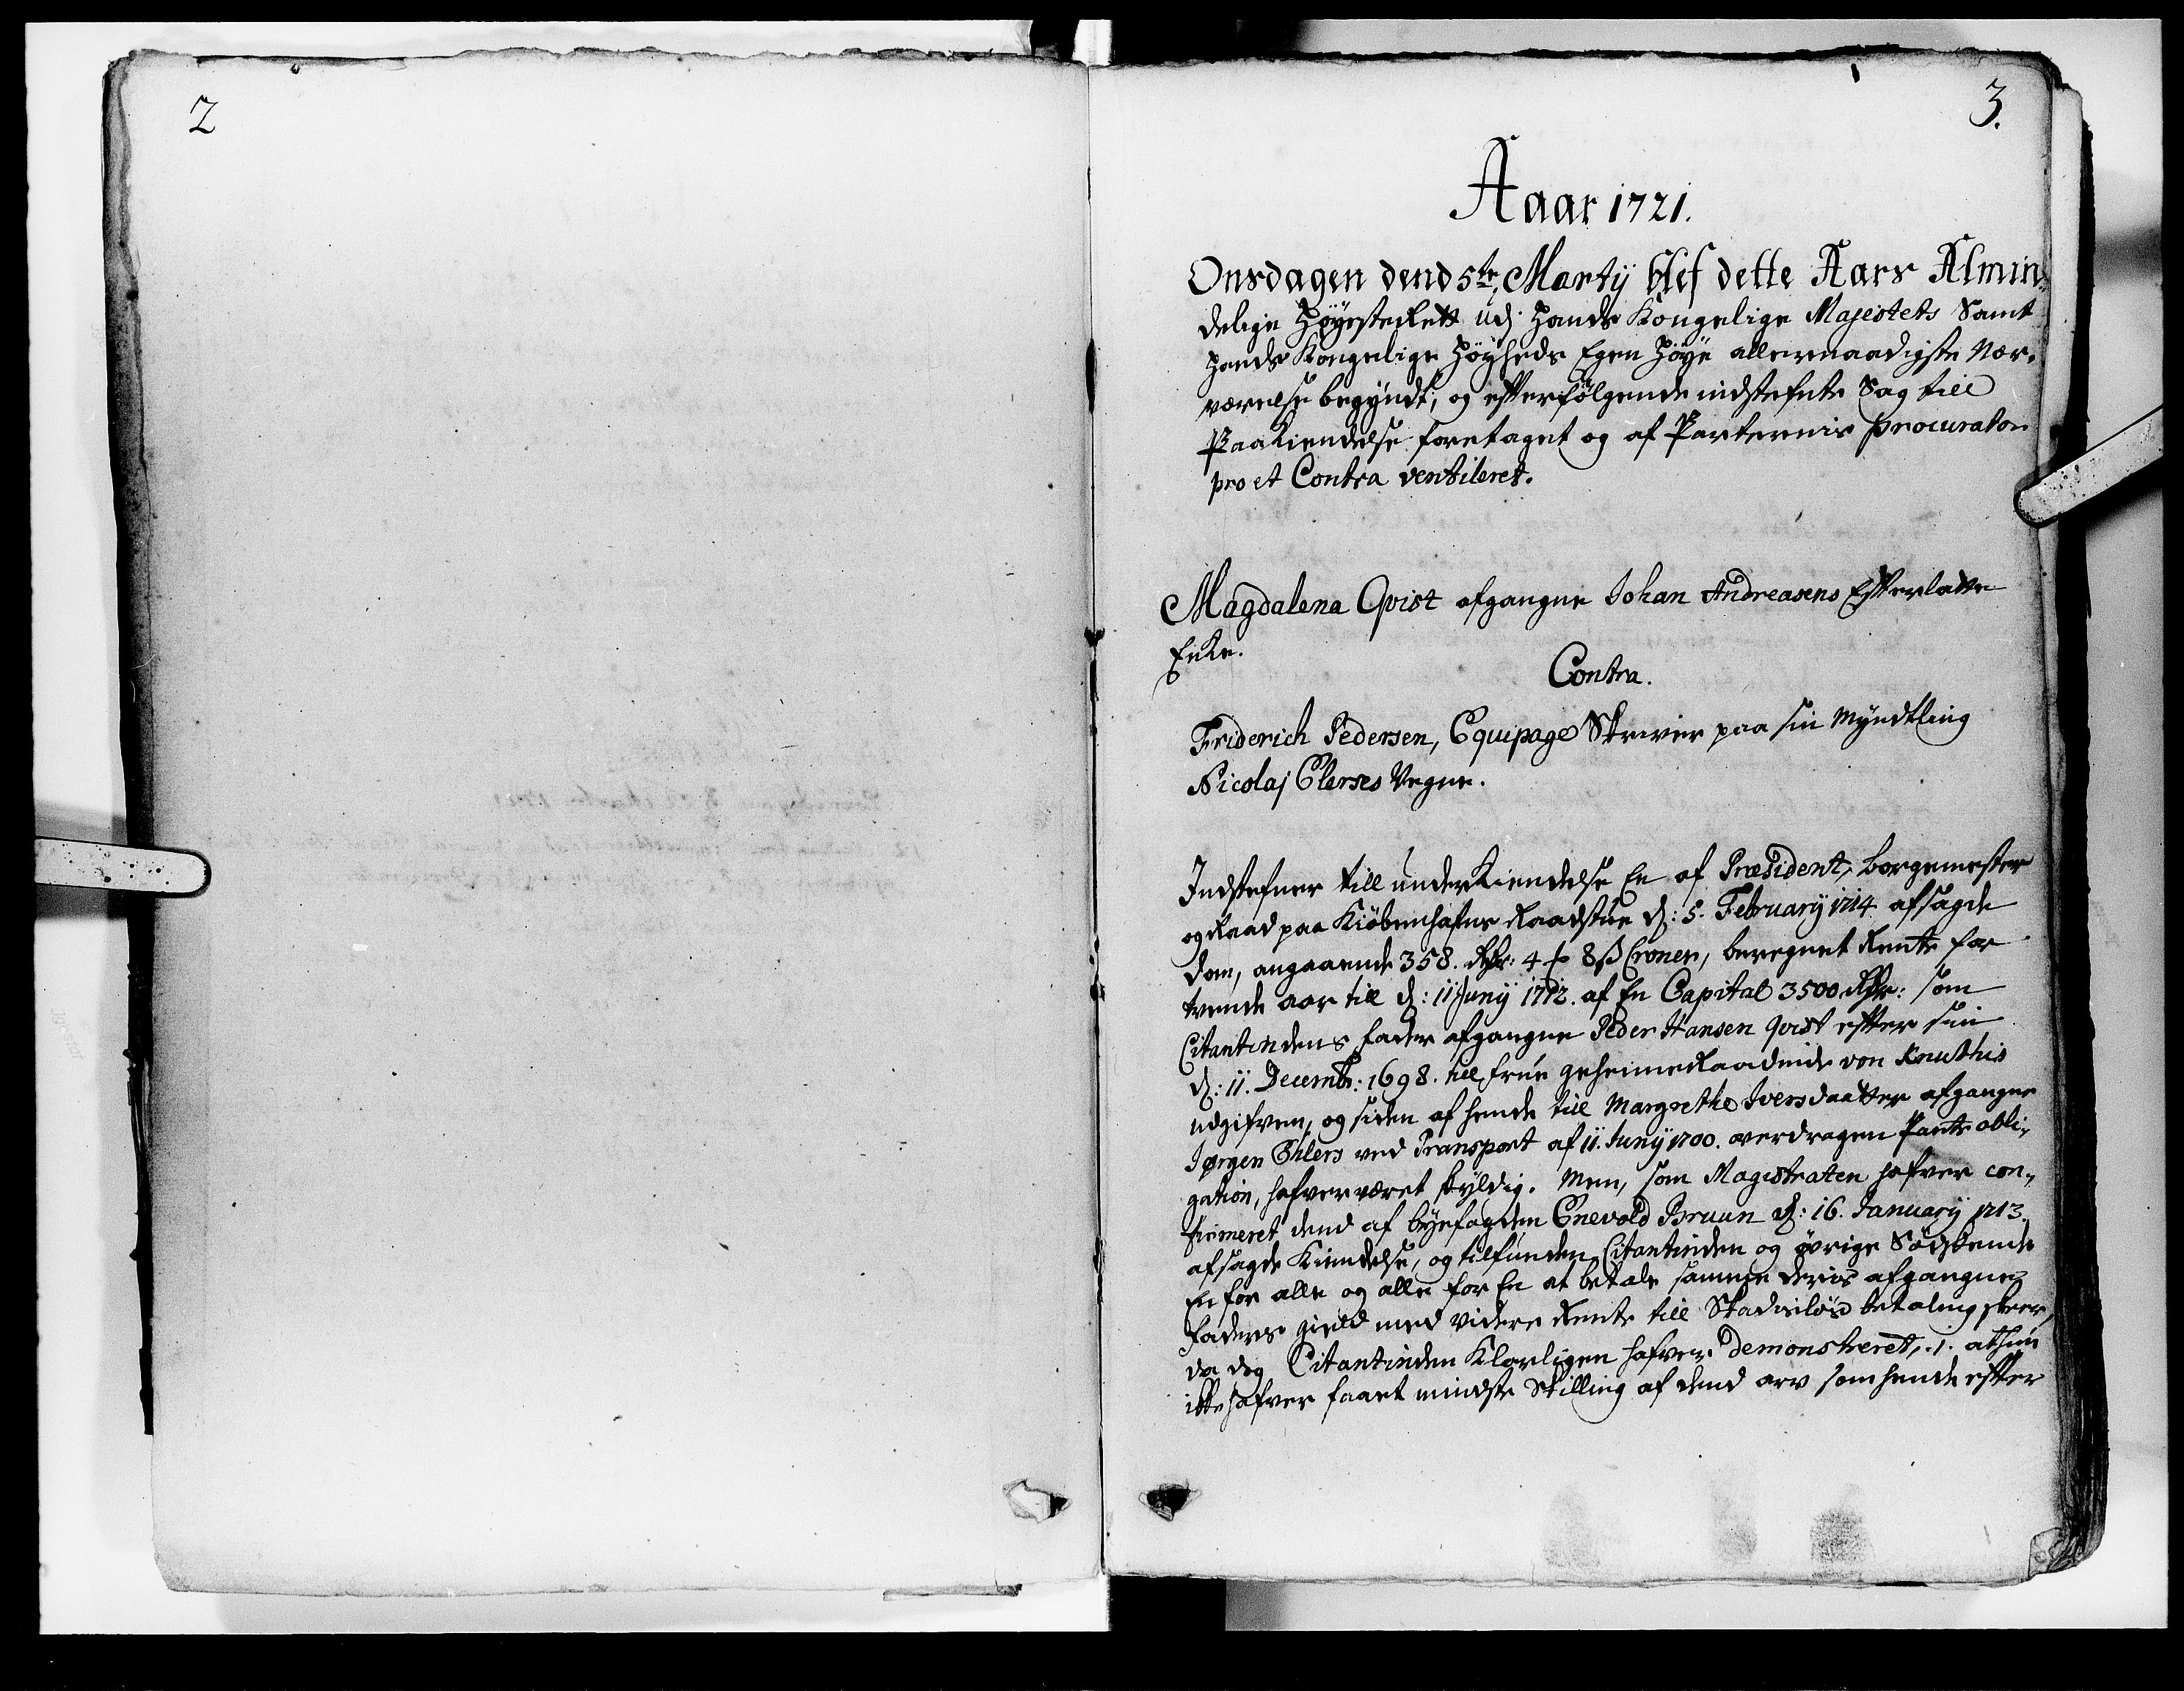 2
3.
Aaar 1721.
Onsdagen dend 5te Martij blef dette Aars Almin-
delige HøyesteRett udj Hands Kongelige Majestets Samt
Hands Kongelige Høyheds Egen Høye allernaadigste Nær-
værelse begyndt, og efterfølgende indstefnte Sag till
Paakiendelse foretaget og af Parternis procurator
pro et Contra ventileret.
Magdalena Qvist afgangne Johan Andreasens Efterlatte
Enke.
Contra.
Friderich Pedersen, Equipage Skriver paa sin Myndtling
Nicolaj Elerses Vegne.
Indstefner till underkiendelse En af Præsident, borgemester
og Raad paa Kiøbenhafns Raadstue d: 5. February 1714 afsagde
dom, angaaende 358. Rdr: 4 ß Croner, beregnet Rente for
tvende aar till d: 11 Junij 1712. af En Capital 3500 Rdr: som
Citantindens fader afgangne Peder Hansen Qvist efter sin
d: 11. Decembr: 1698. till frue geheimeRaadinde von Knuthis
udgifven, og siden af hende till Margrethe Iversdaatter afgangne
Jørgen Ehlers ved Transport af 11. Junij 1700. overdragen Pante obli-
gation, hafver været skyldig. Men, som Magistraten hafver con-
firmeret dend af byefogden Enevold Bruun d: 16. January 1713.
afsagde Kiendelse, og tilfunden Citantinden og øvrige Sødskende
En for alle og alle for En at betale samme deris afgangne
faders gield med videre Rente till Skadisløs betaling skeer,
da dog Citantinden Klarligen hafver demonstreret, .1. at hun
ikke hafver faaet mindste Skilling af dend arv som hende efter